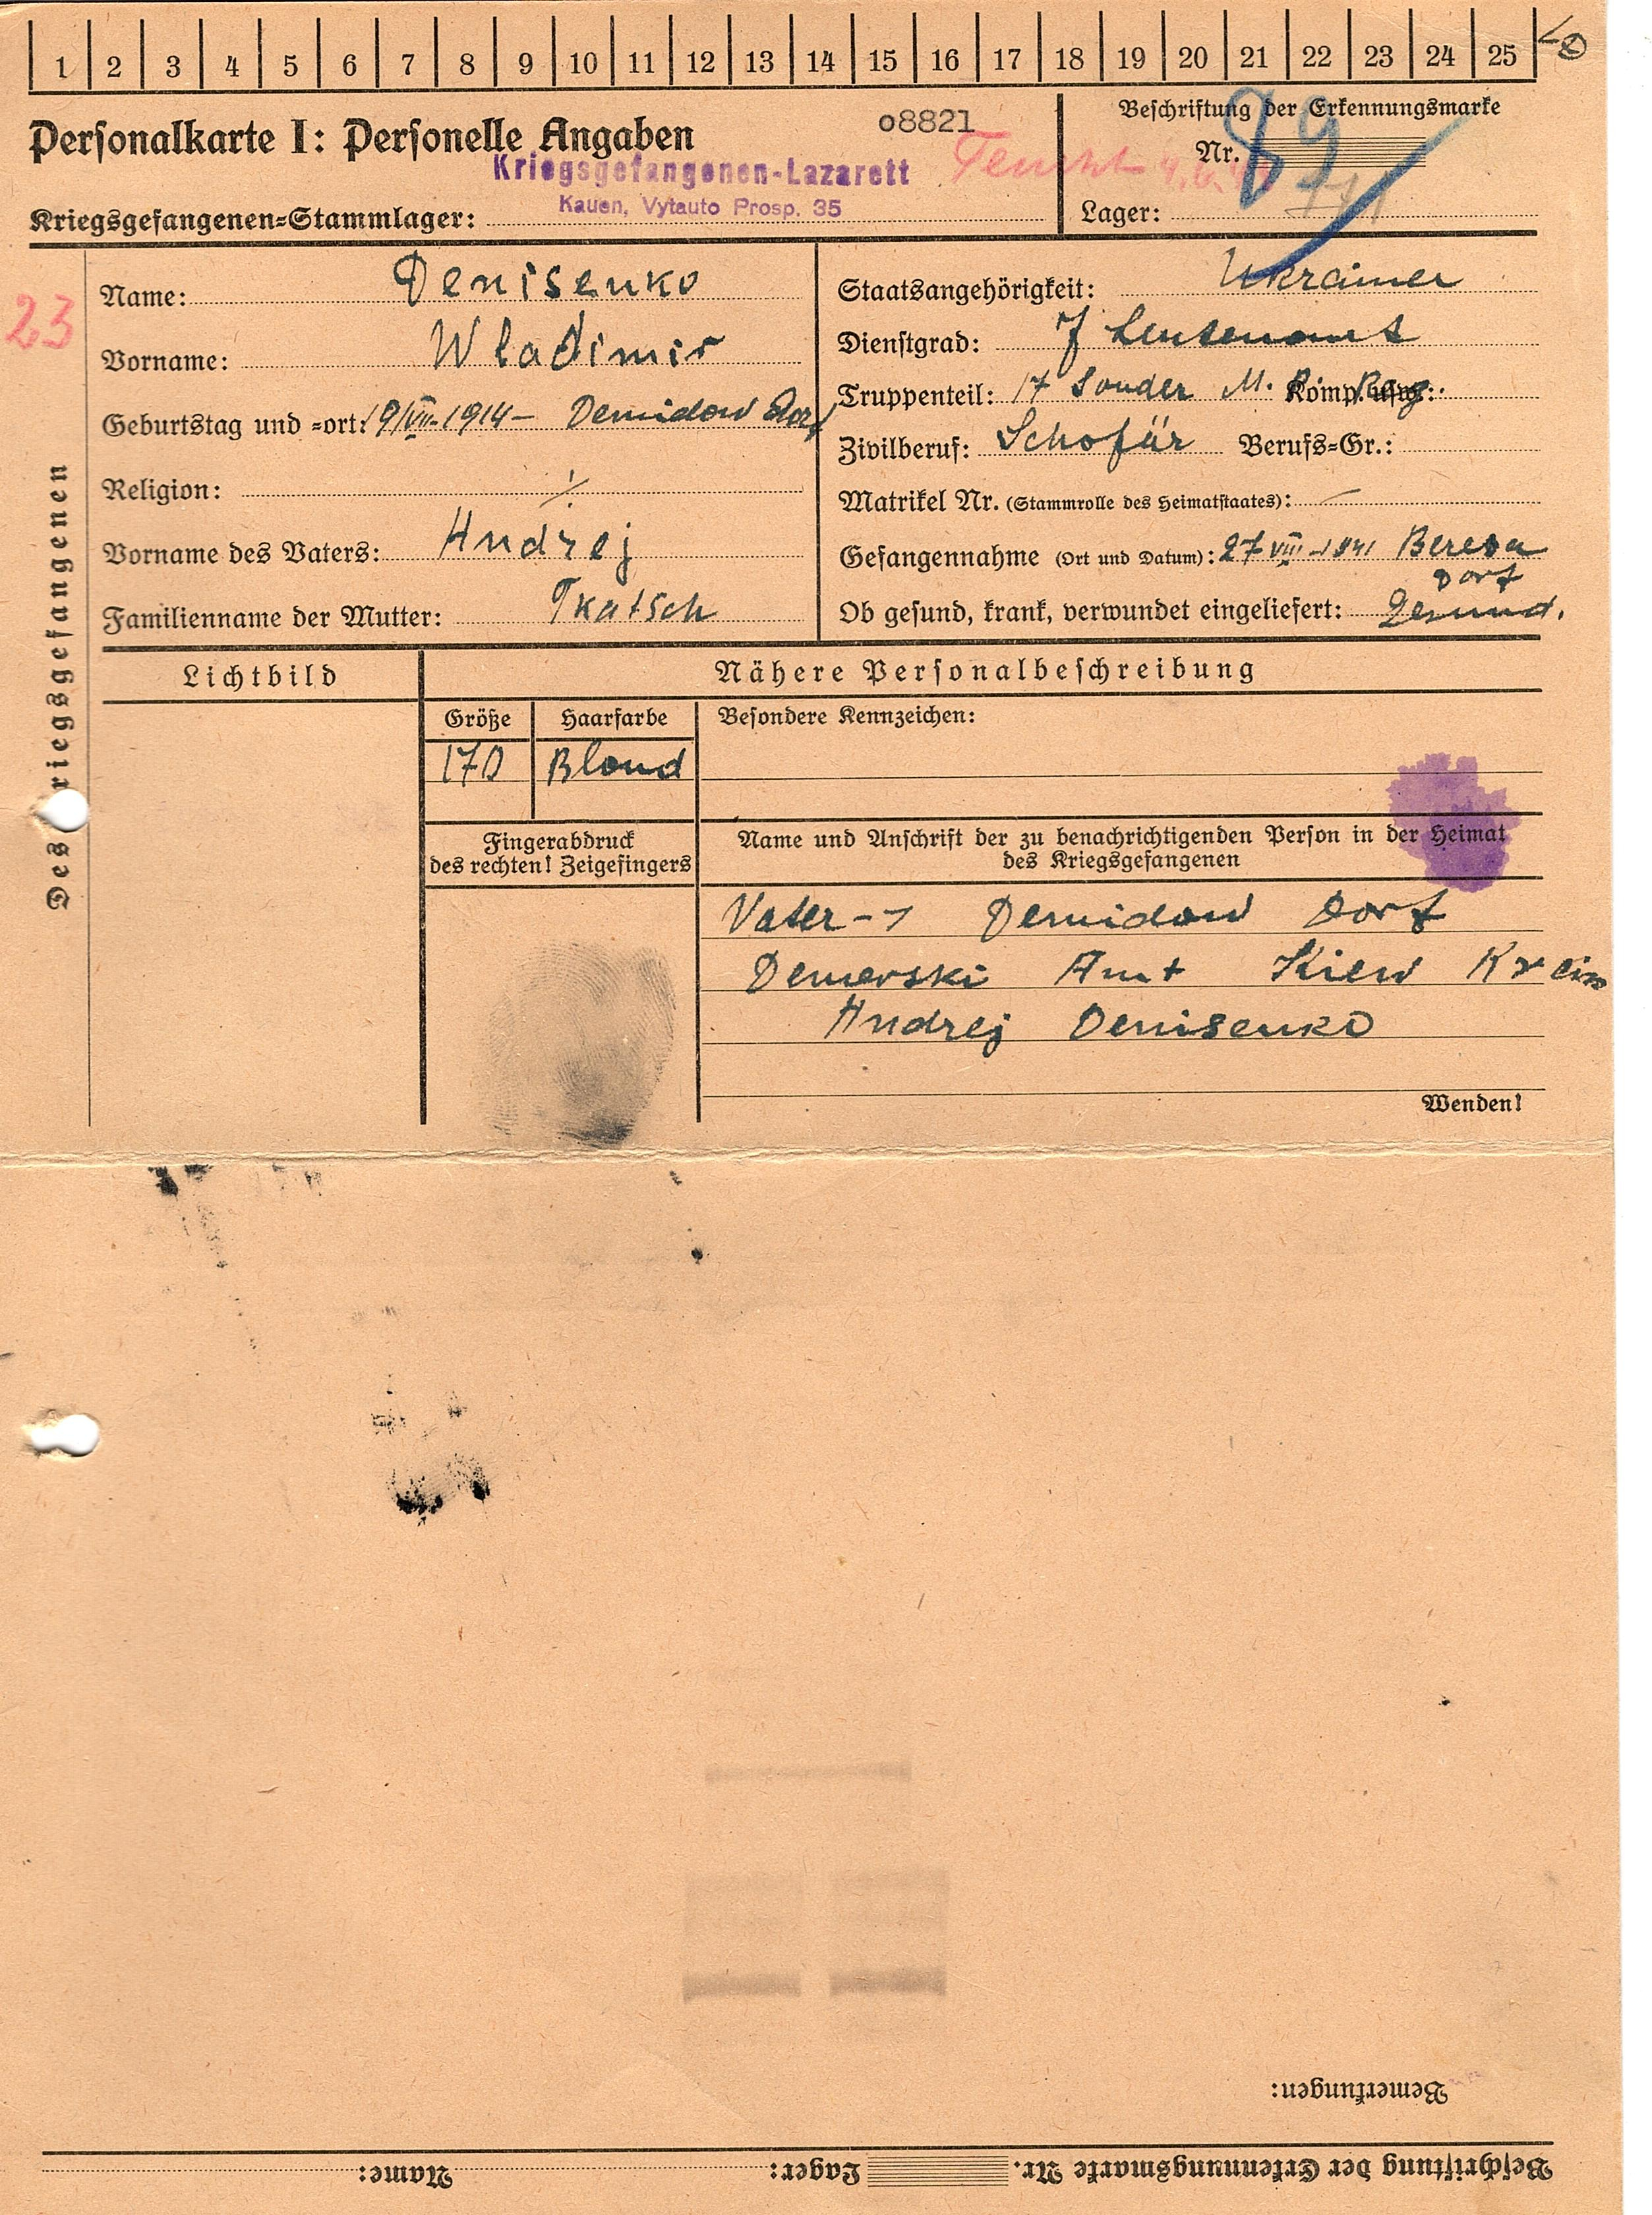 1 2 3 4 5 6 7 8 9 10 11 12 13 14 15 16 17 18 19 20 21 22 23 24 25
Personalkarte I: Personelle Angaben
08821
Beschriftung der Erkennungsmarke
Nr. 89
Kriegsgefangenen-Lazarett
Kauen, Vytauto Prosp. 35
Kriegsgefangenen-Stammlager:
Lager:
23
Des Kriegsgefangenen
Name: Denisenko
Vorname: Wladimir
Geburtstag und -ort: 19/VII-1914- Demidow Dorf
Religion: ./.
Vorname des Vaters: Andrej
Familienname der Mutter: Tkatsch
Staatsangehörigkeit: Ukrainer
Dienstgrad: J Leutenant
Truppenteil: 17 Sonder M. Komp. usw.:
Zivilberuf: Schofär Berufs-Gr.:
Matrikel Nr. (Stammrolle des Heimatstaates): —
Gefangennahme (Ort und Datum): 27-VIII-1941 Beresa Dorf
Ob gesund, krank, verwundet eingeliefert: Gesund.
Lichtbild
Nähere Personalbeschreibung
Größe Haarfarbe Besondere Kennzeichen:
170 Blond
Fingerabdruck
des rechten! Zeigefingers
Name und Anschrift der zu benachrichtigenden Person in der Heimat
des Kriegsgefangenen
Vater - Demidow Dorf
Demerski Amt Kiew
Andrej Denisenko
Wenden!
Bemerkungen:
Beschriftung der Erkennungsmarke Nr. Lager: Name: